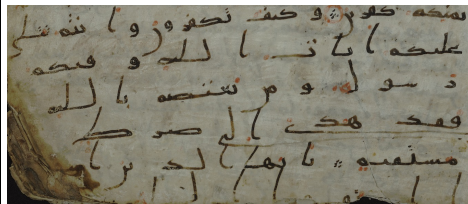 يمنكم كفرين وكيف تكفرون وانتم تتلى
عليكم ايات الله وفيكم
رسوله ومن يعتصم بالله
فقد هدى الى صرط
مستقيم يايها الذين ا